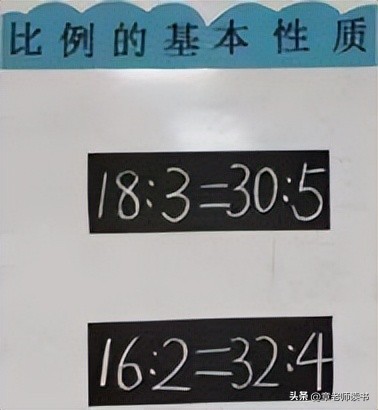 比例的基本性质
18:3=30:5
16:2=32:4
头条 @章老师读书